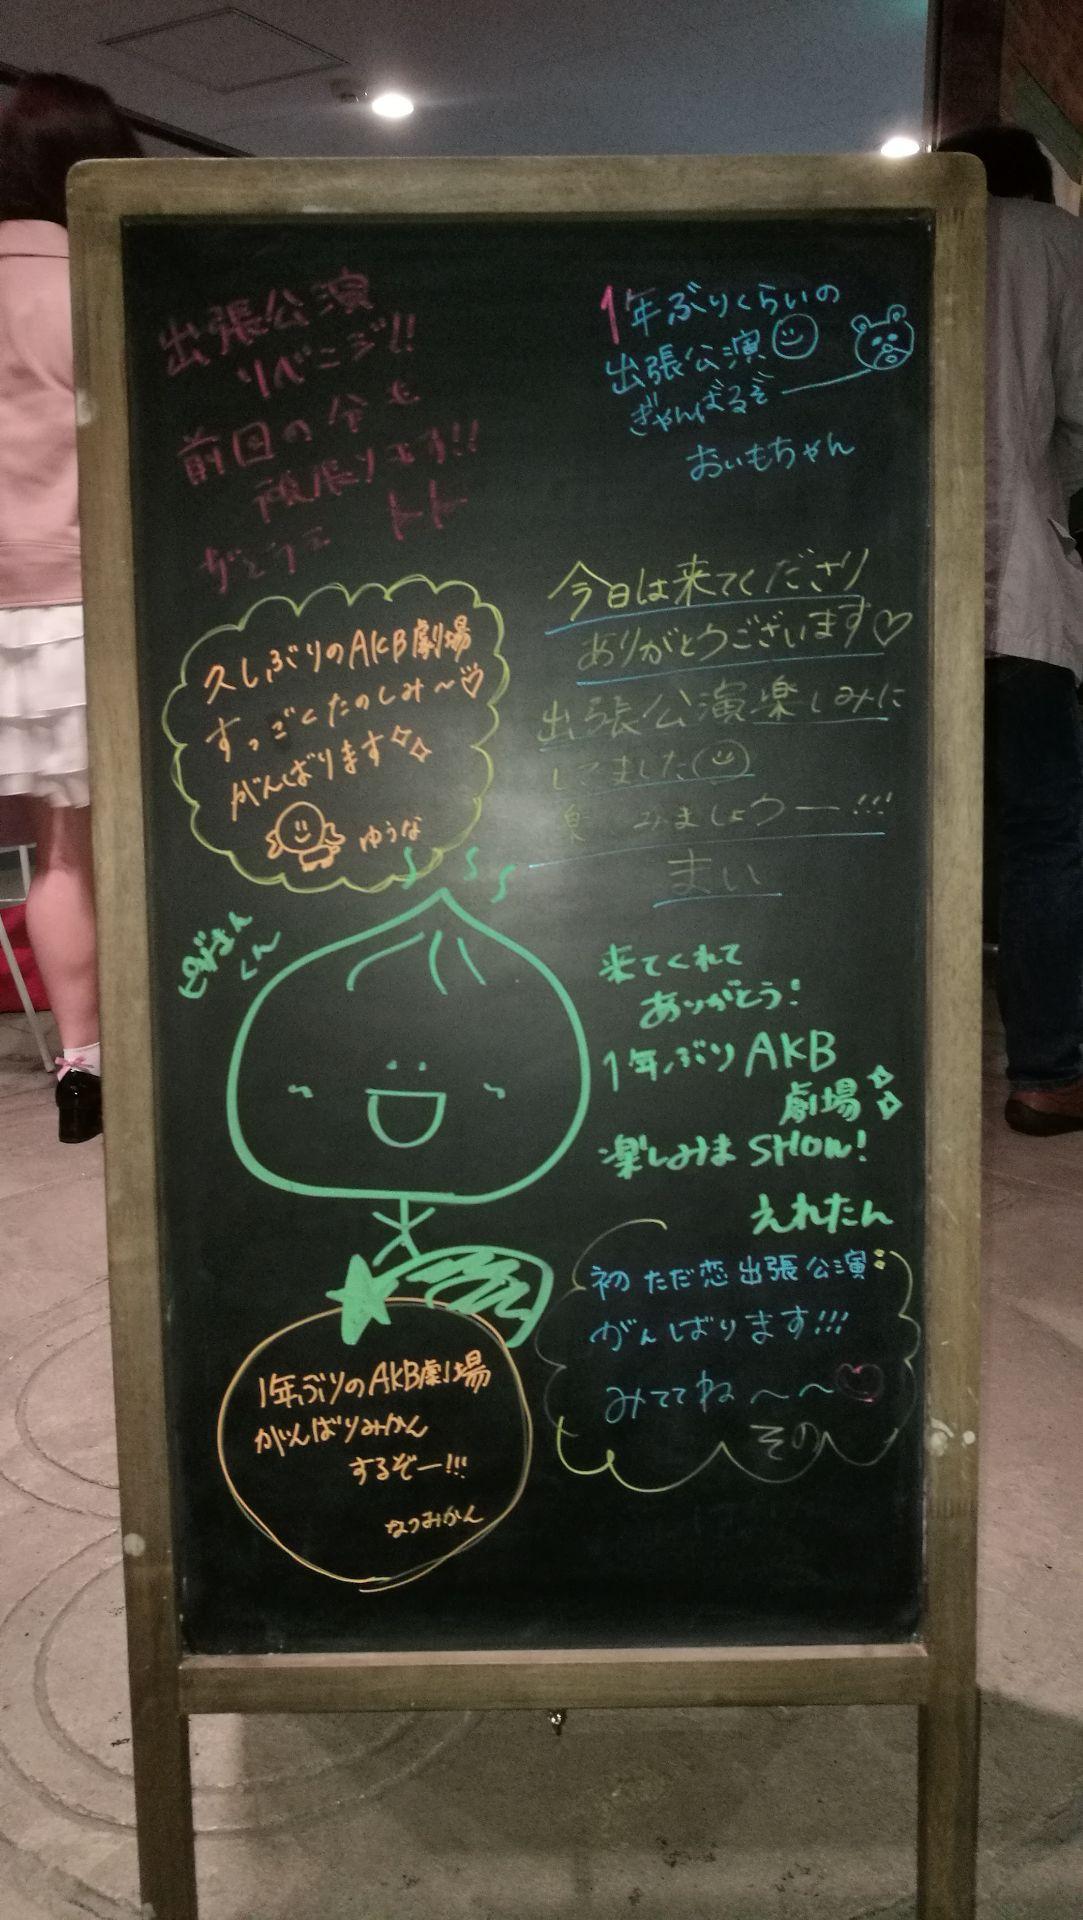 出張公演
リベンジ!!
前回の分も
頑張ります!!
トト
1年ぶりくらいの
出張公演
ぎゃんばるぞ
おいもちゃん
久しぶりのAKB劇場
すっごくたのしみ〜♡
がんばります
ゆうな
今日は来てくださり
ありがとうございます♡
出張公演楽しみに
してました
楽しみましょうー!!!
まい
くん
来てくれて
ありがとう!
1年ぶりAKB
劇場
楽しみまSHOW!
えれたん
1年ぶりのAKB劇場
がんばりみかん
するぞー!!!
なつみかん
初ただ恋出張公演
がんばります!!!
みててね〜〜
その